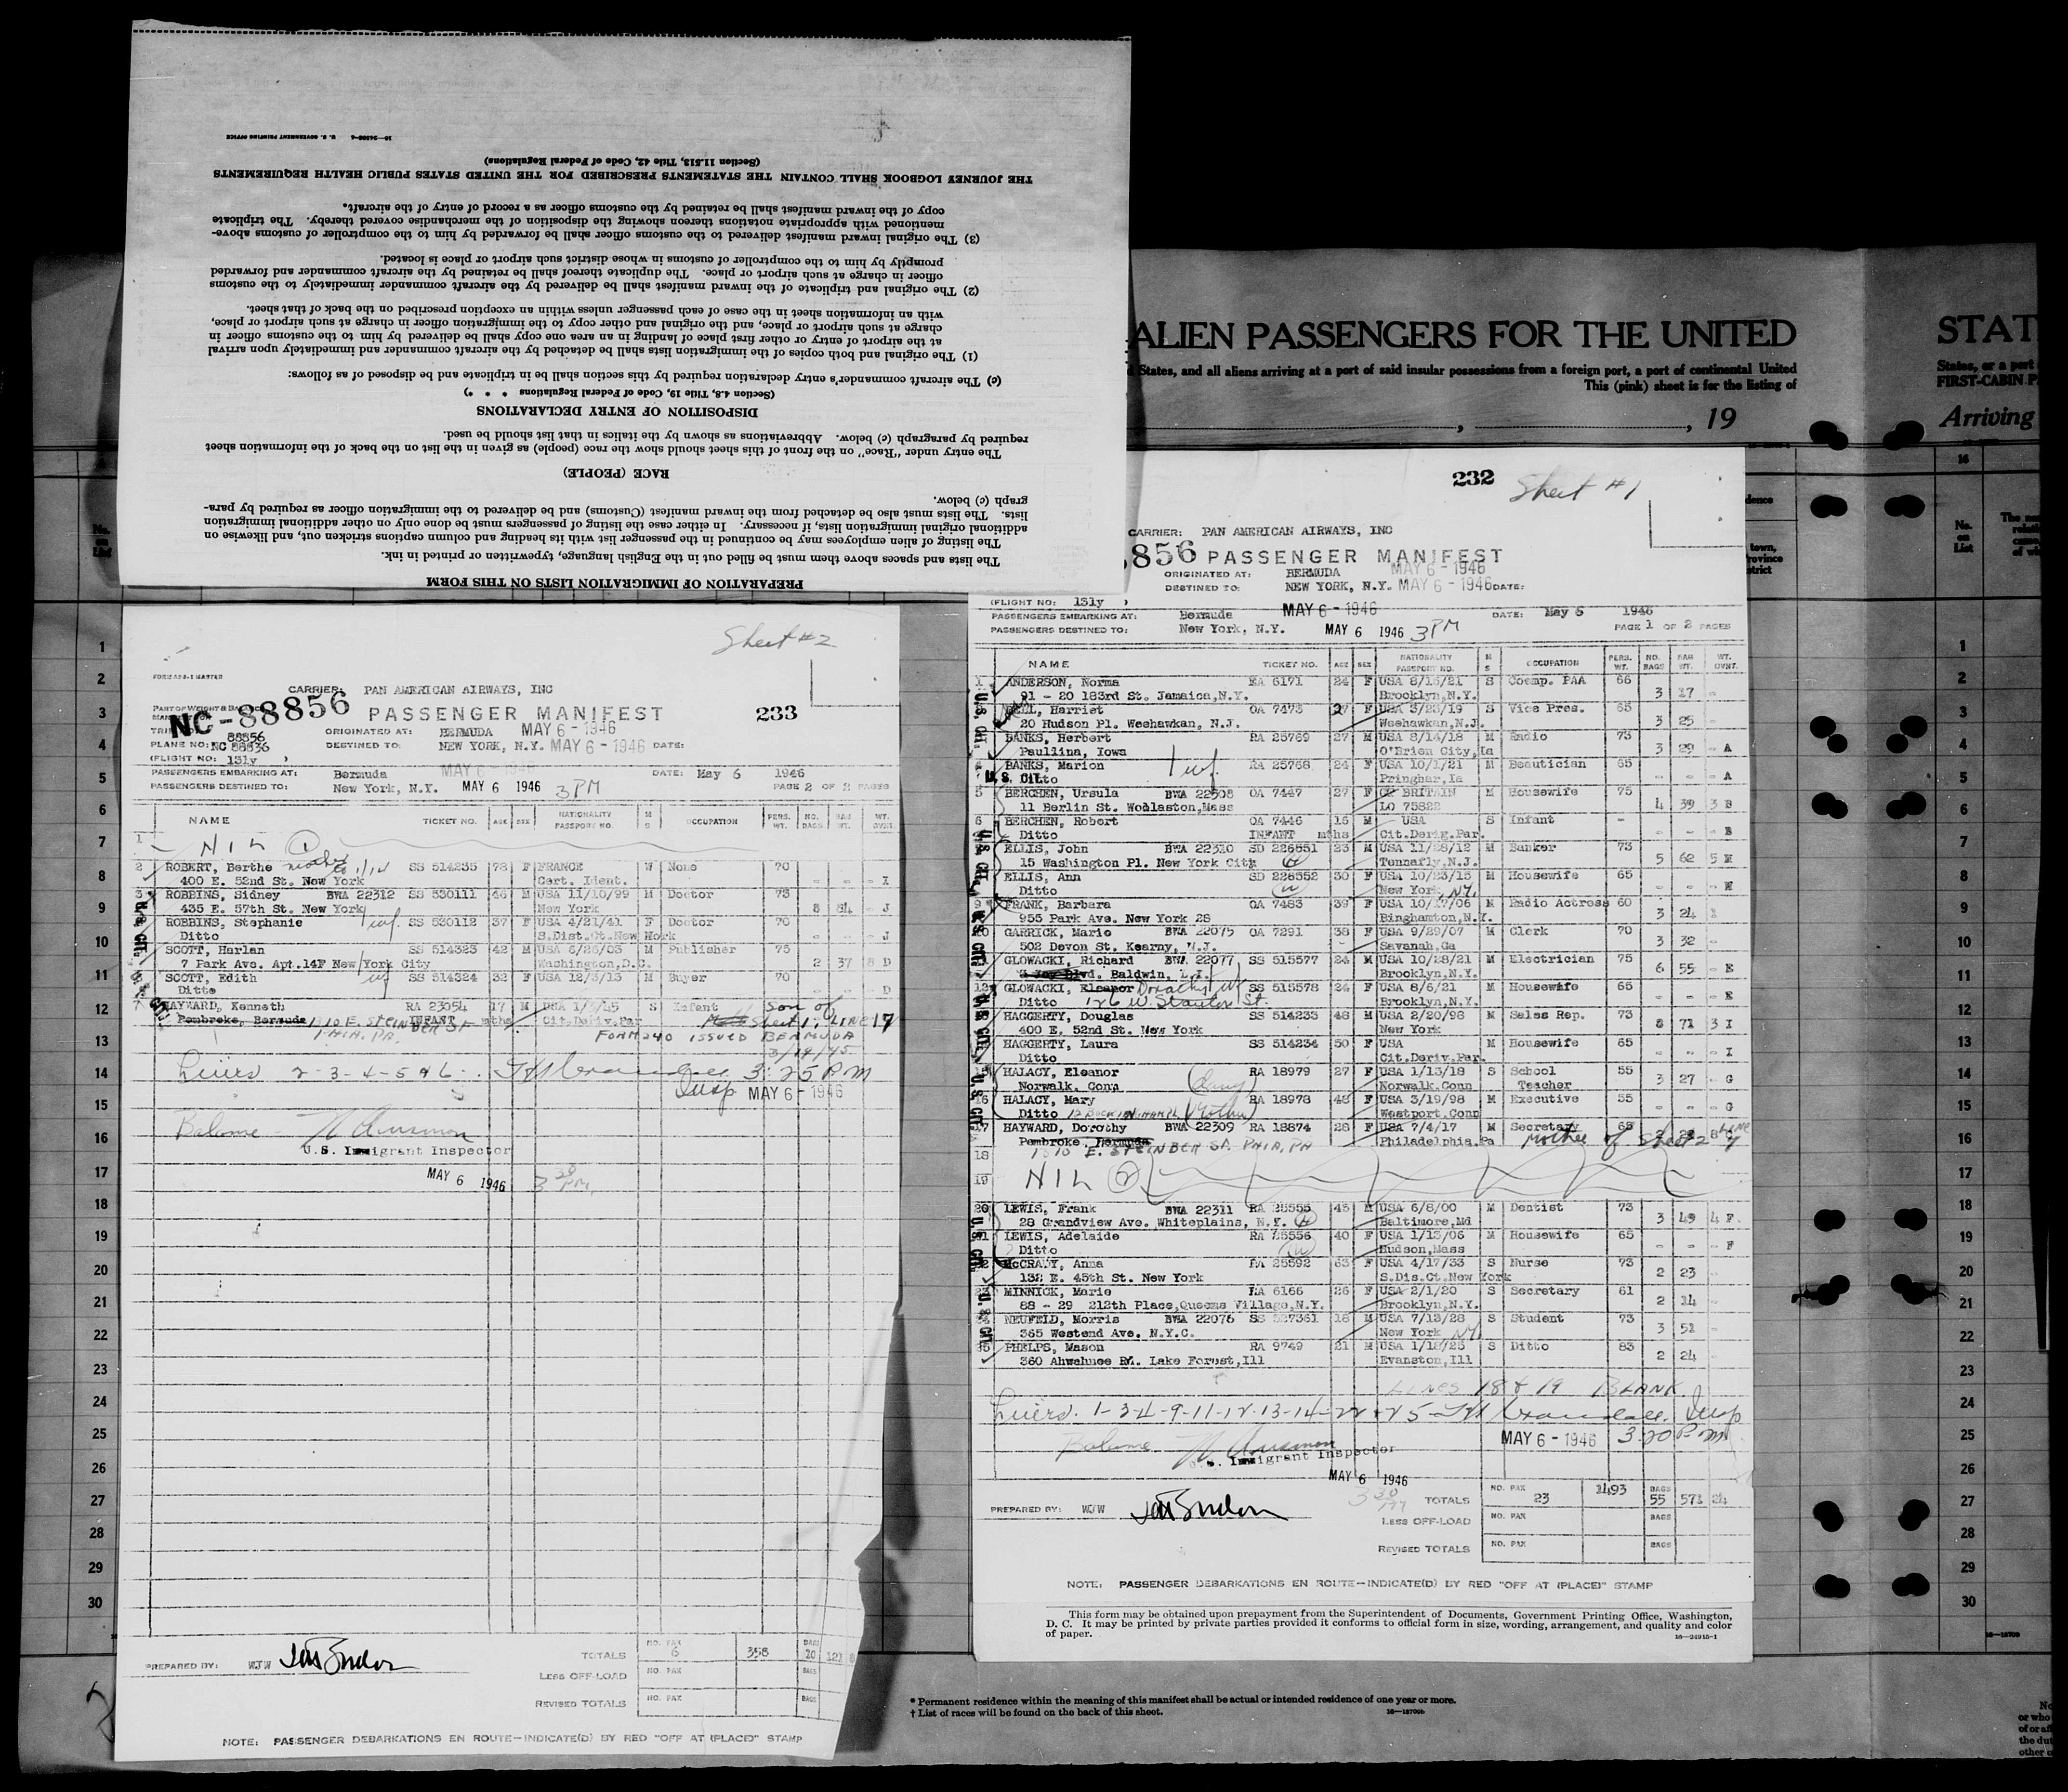 PREPARATION OF IMMIGRATION LISTS ON THIS FORM
The lists and spaces above them must be filled out in the English language, typewritten or printed in ink.
The listing of alien employees may be continued in the passenger list with its heading and column captions stricken out, and likewise on
additional original immigration lists, if necessary. In either case the listing of passengers must be done only on other additional immigration
lists. The lists must also be detached from the inward manifest (Customs) and be delivered to the immigration officer as required by para-
graph (c) below.
RACE (PEOPLE)
The entry under "Race" on the front of this sheet should show the race (people) as given in the list on the back of the information sheet
required by paragraph (c) below. Abbreviations as shown by the italics in that list should be used.
DISPOSITION OF ENTRY DECLARATIONS
(Section 4.8, Title 19, Code of Federal Regulations * * *)
(c) The aircraft commander's entry declaration required by this section shall be in triplicate and be disposed of as follows:
(1) The original and both copies of the immigration lists shall be detached by the aircraft commander and immediately upon arrival
at the airport of entry or other first place of landing in an area one copy shall be delivered by him to the customs officer in
charge at such airport or place, and the original and other copy to the immigration officer in charge at such airport or place,
with an information sheet in the case of each passenger unless within an exception prescribed on the back of that sheet.
(2) The original and triplicate of the inward manifest shall be delivered by the aircraft commander immediately to the customs
officer in charge at such airport or place. The duplicate thereof shall be retained by the aircraft commander and forwarded
promptly by him to the comptroller of customs in whose district such airport or place is located.
(3) The original inward manifest delivered to the customs officer shall be forwarded by him to the comptroller of customs above-
mentioned with appropriate notations thereon showing the disposition of the merchandise covered thereby. The triplicate
copy of the inward manifest shall be retained by the customs officer as a record of entry of the aircraft.
THE JOURNEY LOGBOOK SHALL CONTAIN THE STATEMENTS PRESCRIBED FOR THE UNITED STATES PUBLIC HEALTH REQUIREMENTS
(Section 11.513, Title 42, Code of Federal Regulations)
U. S. GOVERNMENT PRINTING OFFICE
ALIEN PASSENGERS FOR THE UNITED
States, and all aliens arriving at a port of said insular possessions from a foreign port, a port of continental United
This (pink) sheet is for the listing of
, 19
STAT
States, or a port
FIRST-CABIN P
Arriving
Sheet #2
CARRIER: PAN AMERICAN AIRWAYS, INC
NC-88856 PASSENGER MANIFEST 233
88856
ORIGINATED AT: BERMUDA MAY 6 - 1946
PLANE NO: NC 88836 DESTINED TO: NEW YORK, N.Y. MAY 6 - 1946 DATE:
(FLIGHT NO: 131y )
PASSENGERS EMBARKING AT: Bermuda DATE: May 6 1946
PASSENGERS DESTINED TO: New York, N.Y. MAY 6 1946 3 PM PAGE 2 OF 2 PAGES
NAME TICKET NO. AGE SEX NATIONALITY PASSPORT NO. M S OCCUPATION PERS. WT. NO. BAGS BAG WT. WT. OVWT.
1 NIL 1
2 ROBERT, Berthe SS 514235 78 F FRANCE W None 70
400 E. 52nd St. New York Cert. Ident. - - - I
3 ROBBINS, Sidney BWA 22312 SS 530111 46 M USA 11/10/99 M Doctor 73
435 E. 57th St. New York New York 8 84 - J
ROBBINS, Stephanie wf. SS 530112 37 F USA 4/21/41 F Doctor 70
Ditto S.Dist.Ct.New York - - - J
SCOTT, Harlan SS 514323 42 M USA 6/26/03 M Publisher 75
7 Park Ave. Apt.14F New York City Washington,D.C. 2 37 8 D
SCOTT, Edith wf SS 514324 32 F USA 12/3/13 M Buyer 70
Ditto - - - D
HAYWARD, Kenneth RA 23054 17 M USA 1/3/45 S Infant Son of
Pembroke, Bermuda 1810 E. STEINBER ST INFANT mths Cit.Deriv.Par Sheet 1, LINE 17
PHIA, PA. FORM 240 ISSUED BERMUDA
3/19/45
2-3-4-5 & 6 3:25 P.M
Insp MAY 6 - 1946
U.S. Immigrant Inspector
MAY 6 1946 3 30 PM.
PREPARED BY: WJW
TOTALS NO. PAX 6 358 BAGS 10 121 8
LESS OFF-LOAD NO. PAX BAGS
REVISED TOTALS NO. PAX BAGS
NOTE: PASSENGER DEBARKATIONS EN ROUTE—INDICATE(D) BY RED "OFF AT (PLACE)" STAMP
232 Sheet #1
CARRIER: PAN AMERICAN AIRWAYS, INC
8856 PASSENGER MANIFEST
ORIGINATED AT: BERMUDA MAY 6 - 1946
DESTINED TO: NEW YORK, N.Y. MAY 6 - 1946 DATE:
(FLIGHT NO: 131y ) MAY 6 - 1946
PASSENGERS EMBARKING AT: Bermuda DATE: May 6 1946
PASSENGERS DESTINED TO: New York, N.Y. MAY 6 1946 3 PM PAGE 1 OF 2 PAGES
NAME TICKET NO. AGE SEX NATIONALITY PASSPORT NO. M S OCCUPATION PERS. WT. NO. BAGS BAG WT. WT. OVWT.
1 ANDERSON, Norma RA 6171 24 F USA 8/15/21 S Coemp. PAA 66
91 - 20 183rd St. Jamaica,N.Y. Brooklyn,N.Y. 3 17 -
BELL, Harriet OA 7473 27 F USA 3/23/19 S Vice Pres. 65
20 Hudson Pl. Weehawkan, N.J. Weehawkan,N.J. 3 25 -
BANKS, Herbert RA 25769 27 M USA 8/14/18 M Radio 73
Paullina, Iowa O'Brien City,Ia 3 29 - A
BANKS, Marion wf. RA 25768 24 F USA 10/1/21 M Beautician 65
Ditto Pringhar,Ia - - - A
5 BERCHEN, Ursula BWA 22308 OA 7447 27 F GR BRITAIN M Housewife 75
11 Berlin St. Wollaston,Mass LO 75822 4 39 3 B
6 BERCHEN, Robert OA 7446 16 M USA S Infant -
Ditto INFANT mths Cit.Derig.Par. - - - B
ELLIS, John BWA 22310 SD 226551 23 M USA 11/28/12 M Banker 73
15 Washington Pl. New York City Tennafly,N.J. 5 62 5 M
ELLIS, Ann SD 226552 30 F USA 10/23/15 M Housewife 65
Ditto New York, NY. - - - M
9 FRANK, Barbara OA 7483 39 F USA 10/17/06 M Radio Actress 60
955 Park Ave. New York 28 Binghamton,N.Y. 3 24
10 GARRICK, Mario BWA 22075 OA 7291 38 F USA 9/29/07 M Clerk 70
502 Devon St. Kearny, N.J. Savanah,Ga 3 32 -
GLOWACKI, Richard BWA 22077 SS 515577 24 M USA 10/28/21 M Electrician 75
Blvd. Baldwin, L.I. Brooklyn,N.Y. 6 55 - E
12 GLOWACKI, Eleanor Dorothy wf SS 515578 24 F USA 8/6/21 M Housewife 65
Ditto 126 W. Stanton St. Brooklyn,N.Y. - - - E
HAGGERTY, Douglas SS 514233 48 M USA 2/20/98 M Sales Rep. 73
400 E. 52nd St. New York New York 8 71 3 I
HAGGERTY, Laura SS 514234 50 F USA M Housewife 65
Ditto Cit.Deriv.Par. - - - I
15 HALACY, Eleanor RA 18979 27 F USA 1/13/18 S School 55
Norwalk. Conn Norwalk.Conn Teacher 3 27 - G
16 HALACY, Mary RA 18978 48 F USA 3/19/98 M Executive 55
Ditto (Mother) Westport.Conn - - - G
17 HAYWARD, Dorothy BWA 22309 RA 18874 28 F USA 7/4/17 M Secretary 65
Pembroke, Bermuda Philadelphia.Pa Mother of Sheet 2 Line 7
18 1810 E. STEINBER ST. PHIA, PA
19 NIL 2
20 LEWIS, Frank BWA 22311 RA 25555 45 M USA 6/8/00 M Dentist 73
28 Grandview Ave. Whiteplains, N.Y. Baltimore,Md 3 49 4 F
21 LEWIS, Adelaide RA 25556 40 F USA 1/13/06 M Housewife 65
Ditto Hudson,Mass - - - F
22 McCRARY, Anna RA 25592 63 F USA 4/17/33 S Nurse 73
132 E. 45th St. New York S.Dis.Ct.New York 2 23 -
23 MINNICK, Marie RA 6166 26 F USA 2/1/20 S Secretary 61
88 - 29 212th Place,Queens Village,N.Y. Brooklyn,N.Y. 2 14 -
24 NEUFELD, Morris BWA 22076 SS 527361 18 M USA 7/13/28 S Student 73
365 Westend Ave. N.Y.C. New York NY. 3 51 -
25 PHELPS, Mason RA 9749 21 M USA 1/18/25 S Ditto 83
360 Ahwahnee Rd. Lake Forest,Ill Evanston,Ill 2 24 -
LINES 18 & 19 BLANK.
1-3-4-9-11-12-13-14-22 & 25 Insp
MAY 6 - 1946 3:20 P.M
U.S. Immigrant Inspector
MAY 6 1946
3 30 PM
PREPARED BY: WJW
TOTALS NO. PAX 23 1493 BAGS 55 571 24
LESS OFF-LOAD NO. PAX BAGS
REVISED TOTALS NO. PAX BAGS
NOTE: PASSENGER DEBARKATIONS EN ROUTE—INDICATE(D) BY RED "OFF AT (PLACE)" STAMP
This form may be obtained upon prepayment from the Superintendent of Documents, Government Printing Office, Washington,
D. C. It may be printed by private parties provided it conforms to official form in size, wording, arrangement, and quality and color
of paper.
16—24915-1
* Permanent residence within the meaning of this manifest shall be actual or intended residence of one year or more.
† List of races will be found on the back of this sheet.